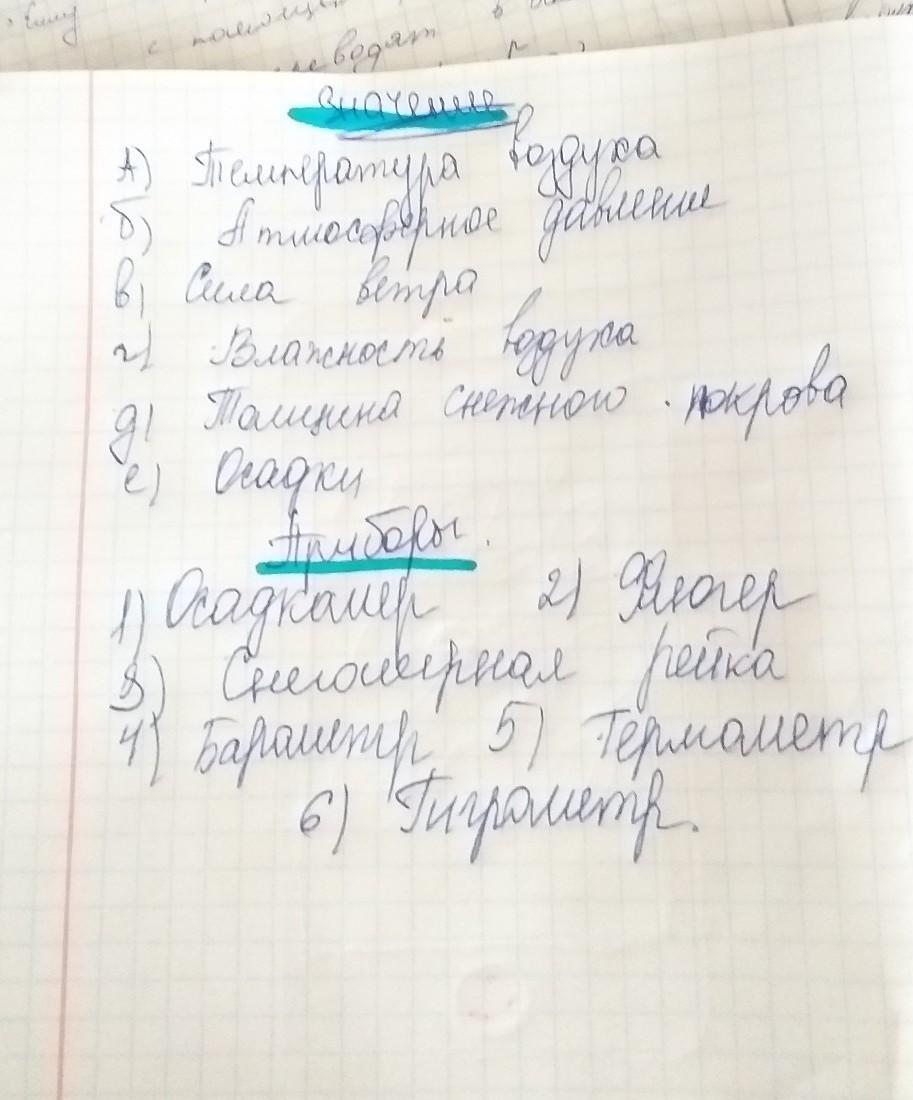 с помощью
водят в
Значение
А) Температура воздуха
б) Атмосферное давление
в) Сила ветра
г) Влажность воздуха
д) Толщина снежного покрова
е) Осадки
Приборы.
1) Осадкомер 2) Флюгер
3) Снегомерная рейка
4) Барометр 5) Термометр
6) Гигрометр.